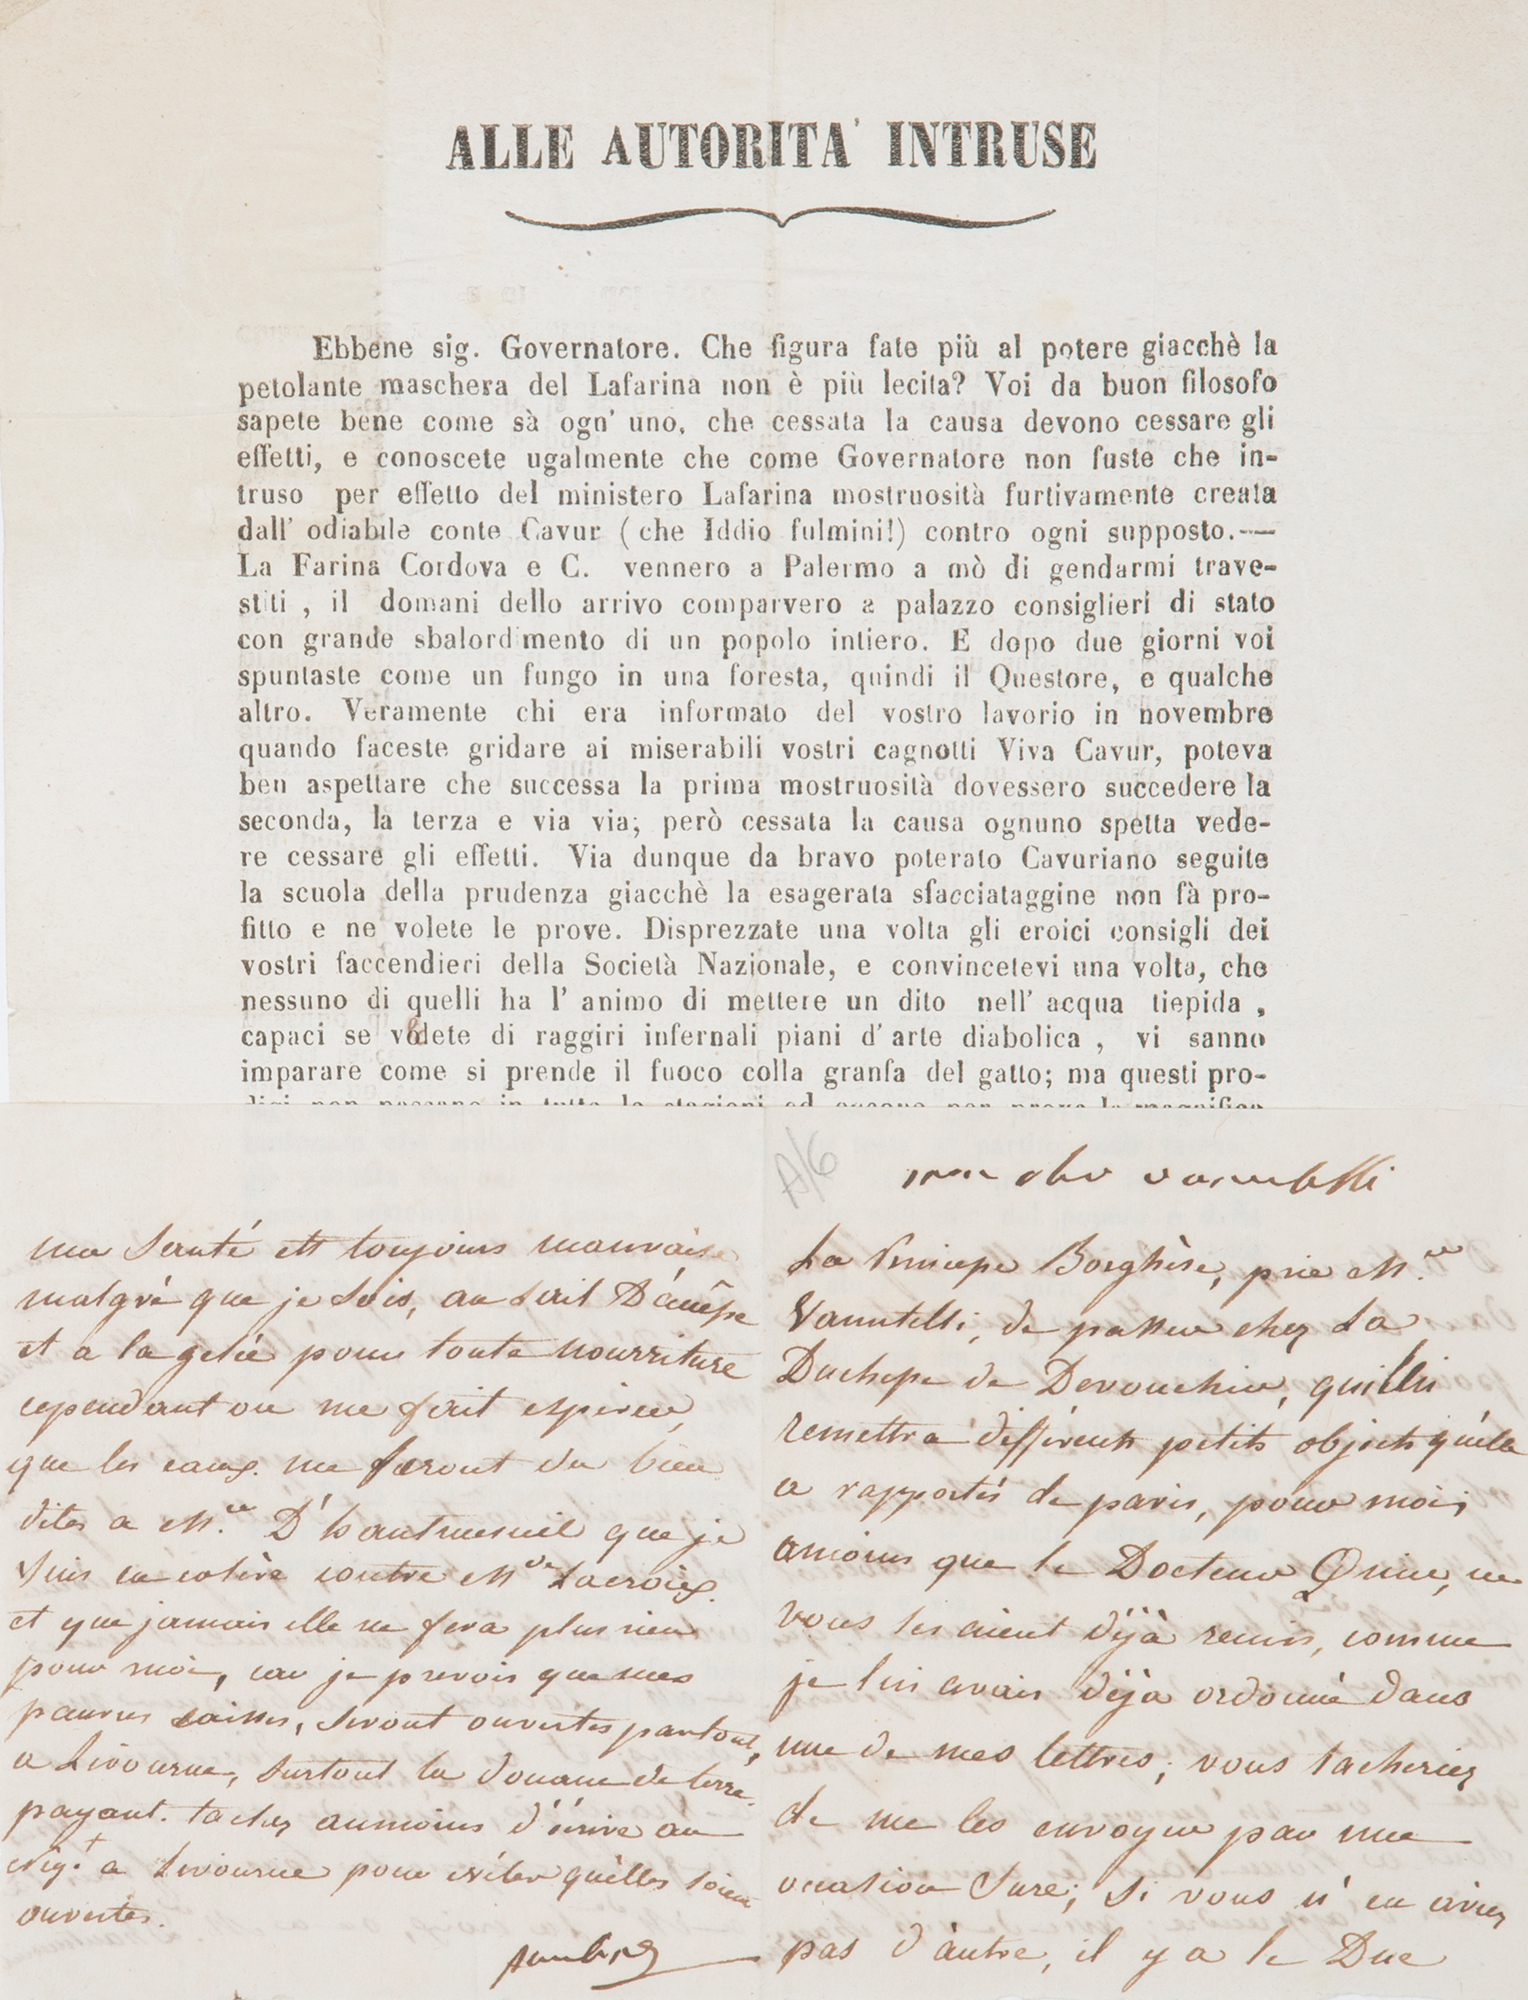 ALLE AUTORITA' INTRUSE
Ebbene sig. Governatore. Che figura fate più al potere giacchè la
petolante maschera del Lafarina non è più lecita? Voi da buon filosofo
sapete bene come sà ogn' uno, che cessata la causa devono cessare gli
effetti, e conoscete ugalmente che come Governatore non fuste che in-
truso per effetto del ministero Lafarina mostruosità furtivamente creata
dall' odiabile conte Cavur (che Iddio fulmini!) contro ogni supposto.—
La Farina Cordova e C. vennero a Palermo a mò di gendarmi trave-
stiti, il domani dello arrivo comparvero a palazzo consiglieri di stato
con grande sbalordimento di un popolo intiero. E dopo due giorni voi
spuntaste come un fungo in una foresta, quindi il Questore, e qualche
altro. Veramente chi era informato del vostro lavorio in novembre
quando faceste gridare ai miserabili vostri cagnotti Viva Cavur, poteva
ben aspettare che successa la prima mostruosità dovessero succedere la
seconda, la terza e via via; però cessata la causa ognuno spetta vede-
re cessare gli effetti. Via dunque da bravo poterato Cavuriano seguite
la scuola della prudenza giacchè la esagerata sfacciataggine non fà pro-
fitto e ne volete le prove. Disprezzate una volta gli eroici consigli dei
vostri faccendieri della Società Nazionale, e convincetevi una volta, che
nessuno di quelli ha l' animo di mettere un dito nell' acqua tiepida,
capaci se vedete di raggiri infernali piani d' arte diabolica, vi sanno
imparare come si prende il fuoco colla granfa del gatto; ma questi pro-
A/6
ma santé est toujours mauvaise
malgré que je sois, au lait D'ânêsse
et a la gelée pour toute nourriture
cependant on me fait espérer,
que les eaux me feront du bien
dites a Mr. D'hautmenil que je
suis en colère contre Mde Lacroix
et que jamais elle ne fera plus rien
pour moi, car je prevois que mes
pauvres caisses, seront ouvertes partout,
a Livourne, surtout la douane de terre
payant. tachez aumoins d'écrire au
Nég.t a Livourne pour éviter qu'elles soient
ouvertes.
vannutelli
La Princesse Borghèse, prie Mr.
Vannutelli, de passer chez La
Duchesse de Devonchire, qui lui
remettra différents petits objets qu'elle
a rapportés de paris, pour moi,
amoins que le Docteur Quin, ne
vous les aient déjà remis, comme
je lui avais déjà ordonné dans
une de mes lettres; vous tacheriez
de me les envoyer par une
occasion sure; si vous n'en avez
pas d'àutre, il y a le Duc